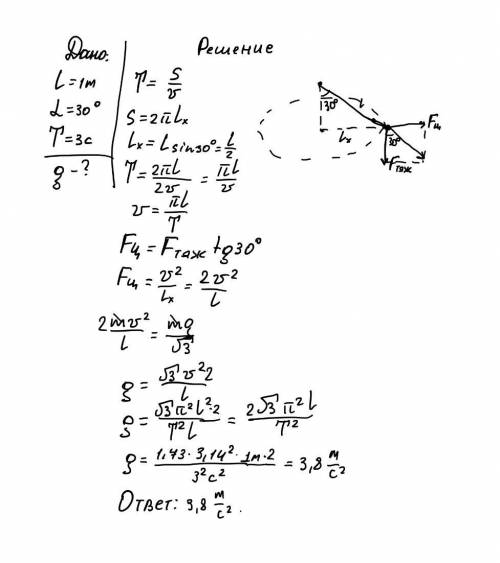 Дано:
l = 1m
α = 30°
T = 3c
g - ?
Решение
T = S/v
S = 2πLx
Lx = L sin30° = l/2
T = 2πl/2v = πl/v
v = πl/T
Fц = Fтяж tg30°
Fц = v²/Lx = 2v²/l
2mv²/l = mg/√3
g = √3 v² 2/l
g = √3 π² l² · 2/T² l = 2√3 π² l/T²
g = 1,73 · 3,14² · 1m · 2/3² c² = 3,8 m/c²
Ответ: 3,8 m/c².
30°
l
Lx
Fц
30°
Fтяж